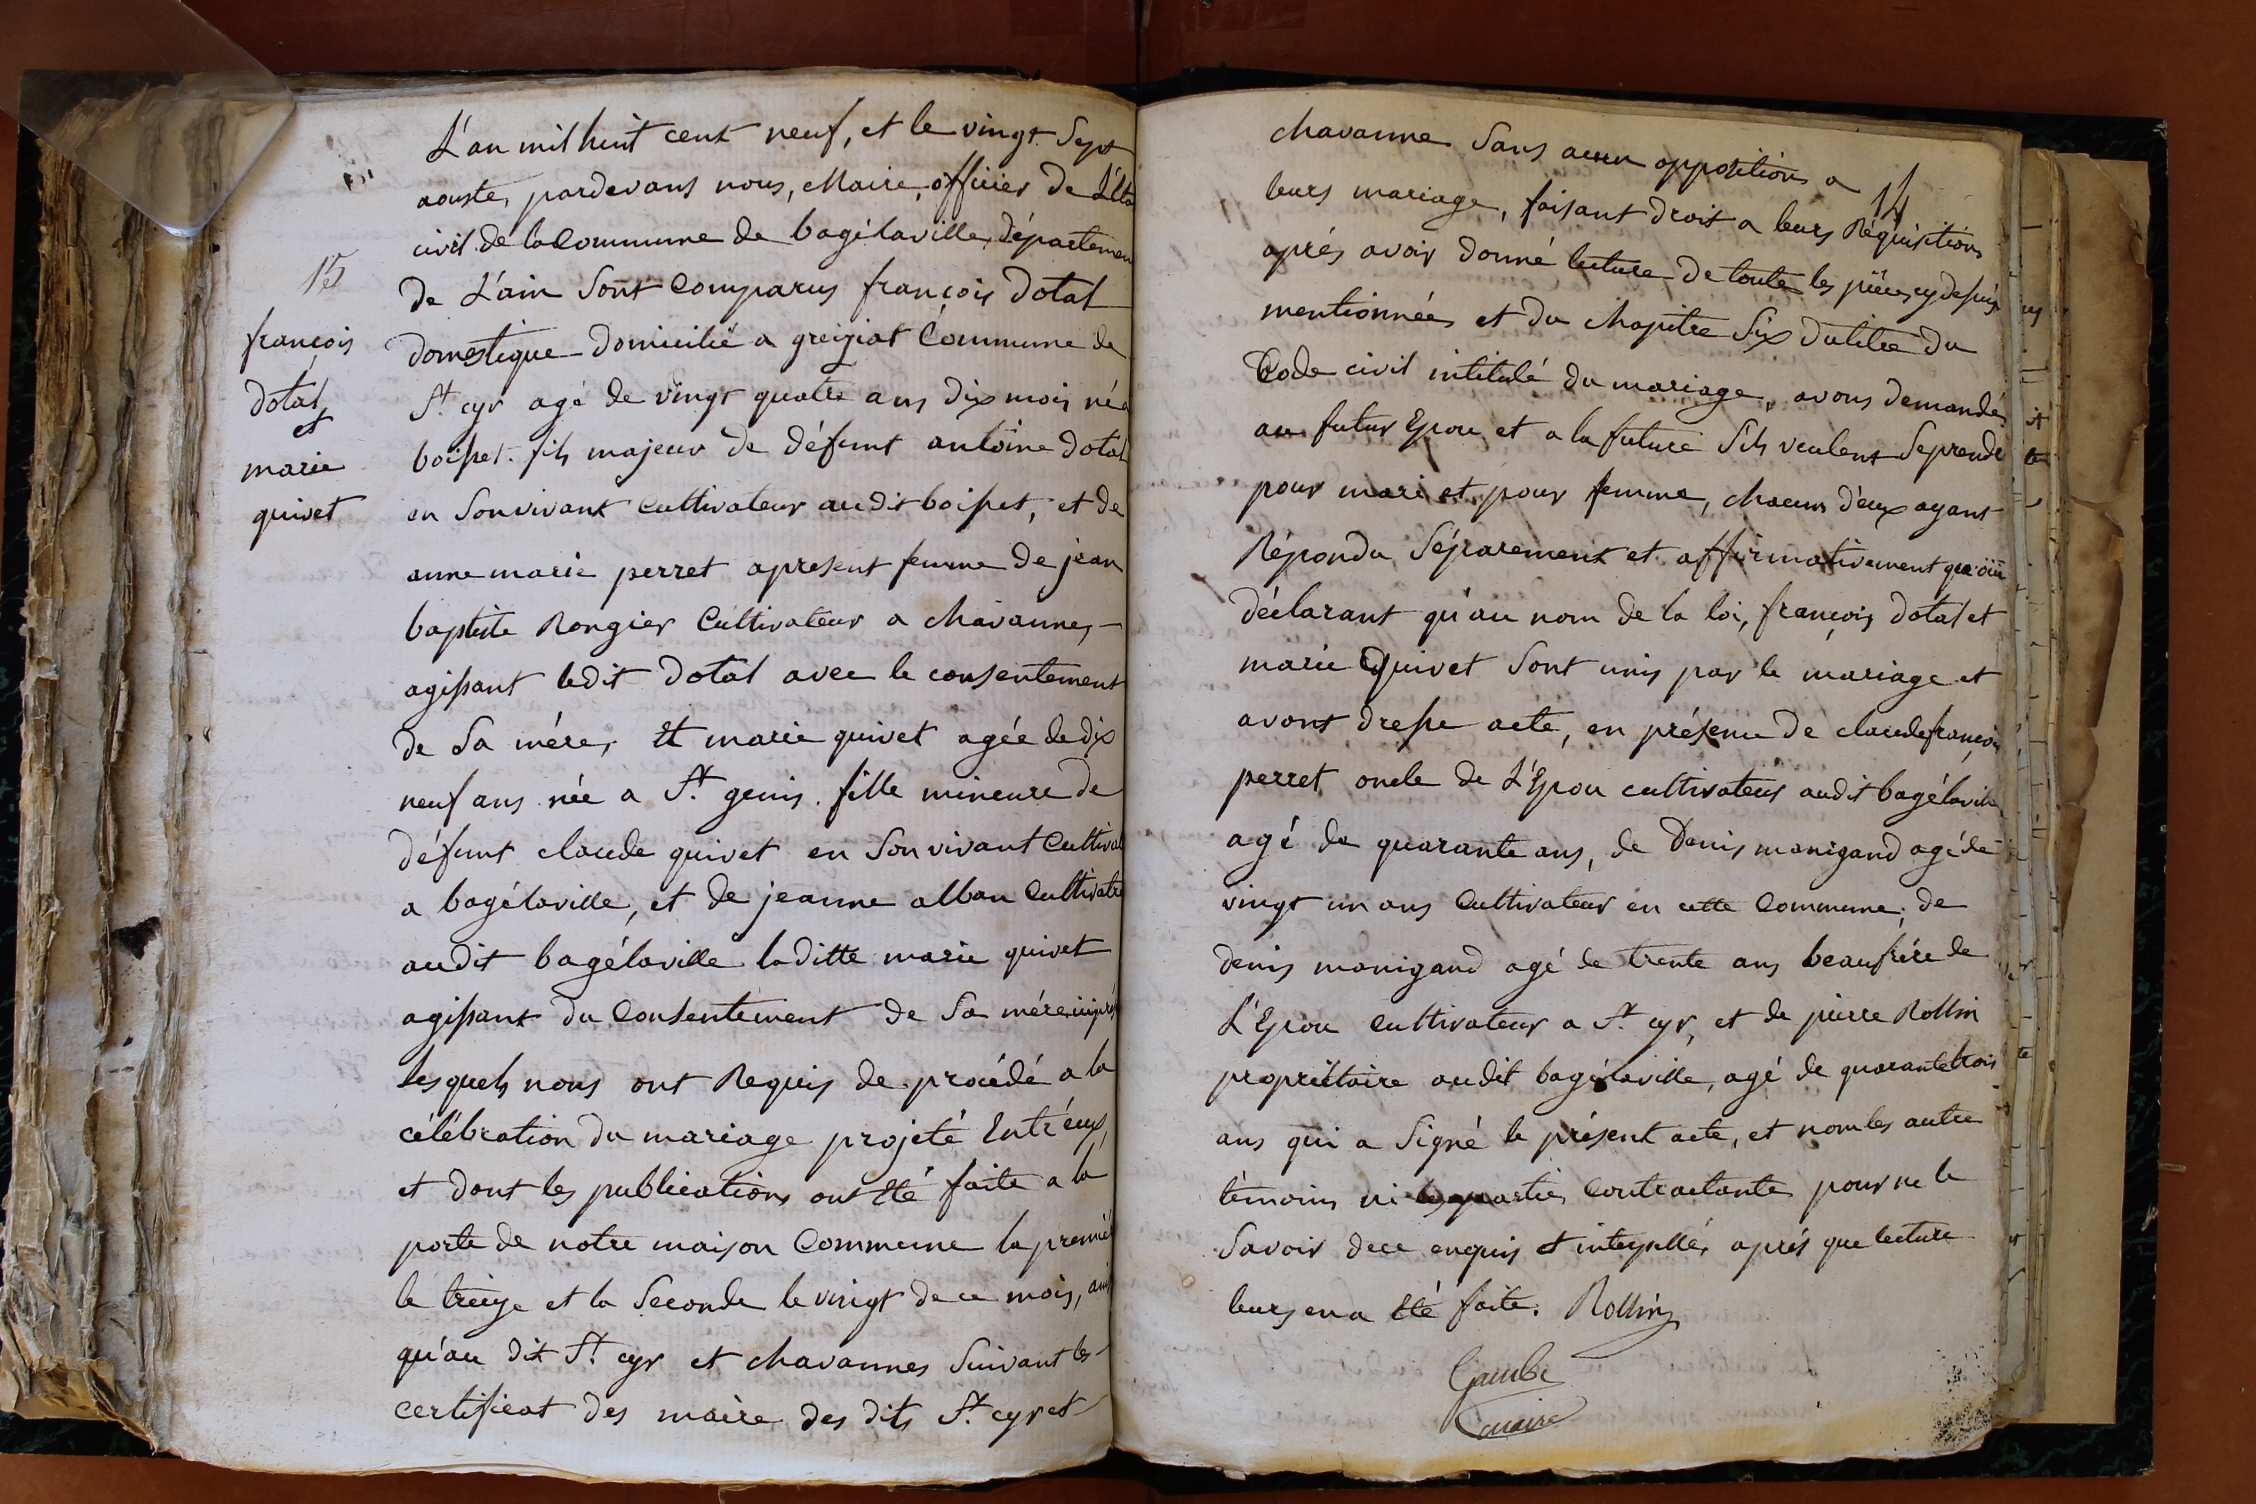 L'an mil huit cent neuf, et le vingt Sept
aouste, pardevans nous, Maire, officier de L'éta
civil de la Commune de bagélaville, départemen
de L'ain Sont Comparus françois dotal
domestique domicilié a greiziat Commune de
St. cyr agé de vingt quatre ans dix mois né a
boisset. fils majeur de défunt antoine dotal
en Son vivant cultivateur audit boisset, et de
anne marie perret apresent femme de jean
baptiste Rongier Cultivateur a chavannes
agissant ledit dotal avec le consentement
de Sa mére, Et marie quivet agée de dix
neuf ans née a St. genis. fille mineure de
défunt claude quivet en Son vivant Cultivat
a bagélaville, et de jeanne alban Cultivatri
audit bagélaville laditte marie quivet
agissant du Consentement de Sa mére
lesquels nous ont Requis de procédé a la
célébration du mariage projeté Entr'eux,
et dont les publications ont Eté faite a la
porte de notre maison Commune la premié
le treize et la Seconde le vingt de ce mois, ains
qu'au dit St. cyr et chavannes Suivant les
certificat des maire des dits St. cyr et
15
françois
dotal
et
marie
quivet
14
chavanne Sans aucun opposition a
leurs mariage, faisant droit a leurs Réquisition
aprés avoir donné lecture de toute les piéces cy dessus
mentionnées et du chapitre Six du titre du
Code civil intitulé du mariage, avons demandé
au futur Epou et a la future S'ils veulent Se prendre
pour mari et pour femme, chacun d'eux ayant
Répondu Séparement et affirmativement que oui
déclarant qu'au nom de la loi, françois dotal et
marie Quivet Sont unis par le mariage et
avont dresse acte, en présence de claude françois
perret oncle de L'Epou cultivateur audit bagélaville
agé de quarante ans, de Denis manigand agé de
vingt un ans Cultivateur en cette Commune, de
denis manigand agé de trente ans beaufrére de
L'Epou cultivateur a St. cyr, et de pierre Rollin
propriétaire audit bagélaville, agé de quarante trois
ans qui a Signé le présent acte, et non les autre
témoins ni les partie Contractante pour ne le
Savoir de ce enquis et interpellé, aprés que lecture
leurs en a Eté faite. Rollin
Gambe
maire